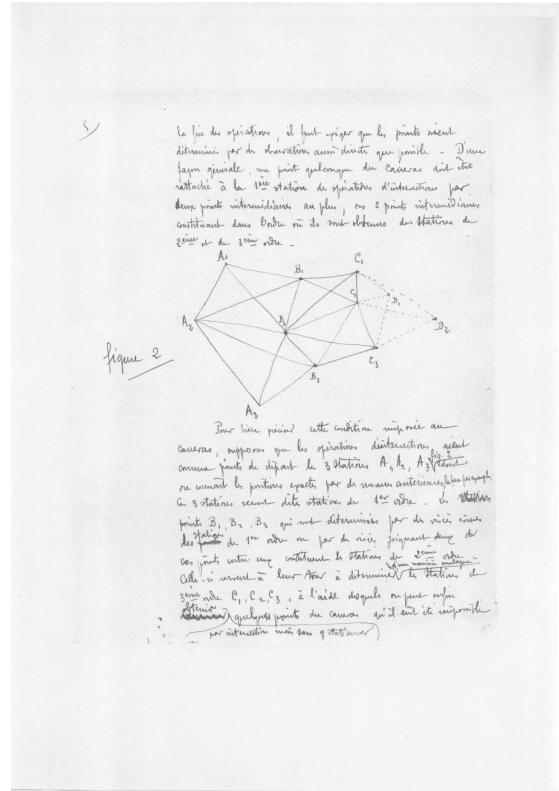 5)
la fin des opérations, il faut exiger que les points soient
déterminés par des observations aussi directes que possible - D'une
façon générale, un point quelconque du canevas doit être
rattaché à la 1ère station de opérations d'intersections par
deux points intermédiaires au plus, ces 2 points intermédiaires
constituant dans l'ordre où ils sont obtenus des stations de
2ème et de 3ème ordre -
A1
B1
C1
C2
D1
A2
B2
D2
figure 2
C3
B3
A3
Pour bien préciser cette condition imposée au
canevas, supposons que les opérations d'intersections, aient
comme points de départ les 3 stations A1 A2, A3 fig. 2 dont
on connait les positions exactes par des mesures antérieures,
Ces 3 stations seront dites stations du 1er ordre - Les
points B1, B2, B3 qui sont déterminés par des visées
des stations de 1er ordre ou par des visées joignant deux de
ces points entre eux constituent les stations de 2ème ordre
Celles-ci servent à leur tour à déterminer d'une manière analogue les stations de
3ème ordre C1, C2, C3, à l'aide desquels on peut enfin
obtenir quelques points du canevas qu'il eût été impossible
par intersection mais sans y stationner)